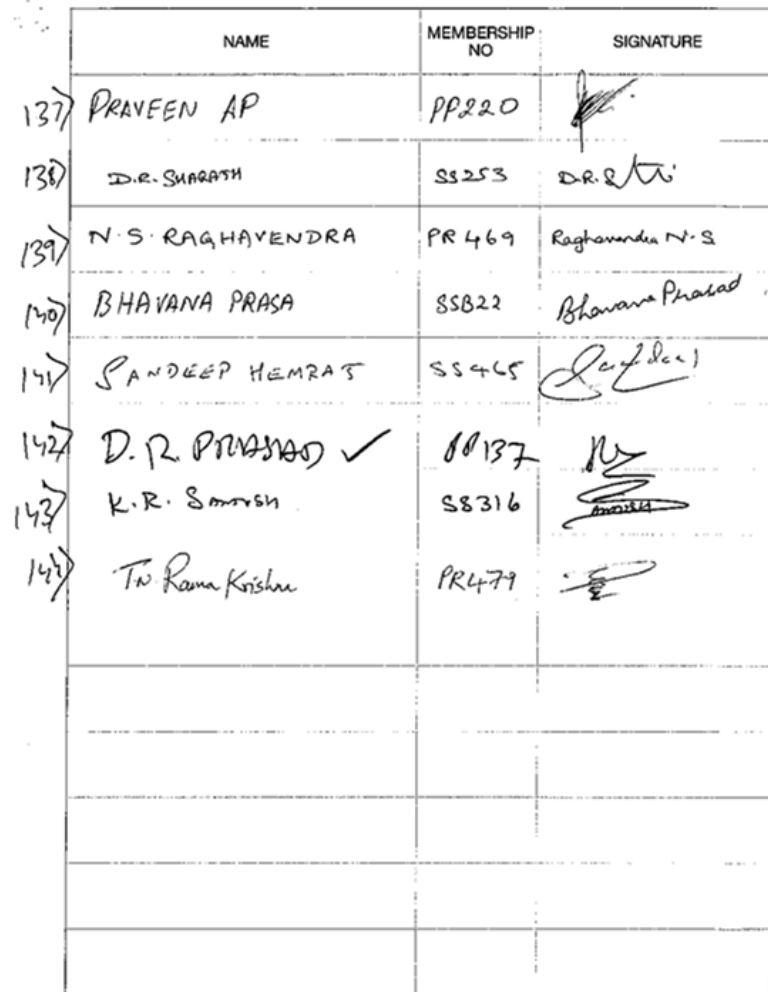 NAME MEMBERSHIP NO SIGNATURE
137) PRAVEEN AP PP220
138) D.R. SHARATH SS253 D.R.S
139) N.S. RAGHAVENDRA PR 469 Raghavendra N.S
140) BHAVANA PRASA SSB22 Bhavana Prasad
141) SANDEEP HEMRAJ SS465 Sandeep
142) D.R. PRASAD ✓ PP137
143) K.R. Santosh SS316
144) T.N. Rama Krishna PR479